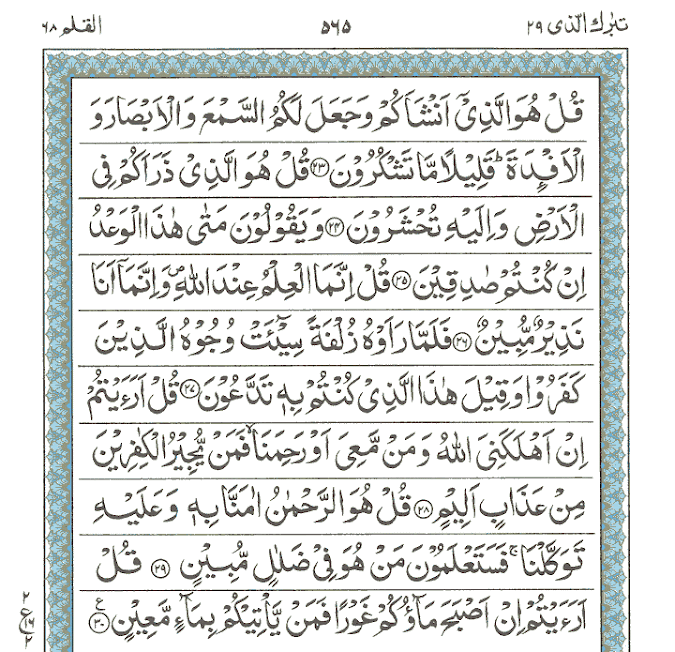 تبٰرك الذی ۲۹ ۵۶۵ القلم ۶۸
قُلْ هُوَ الَّذِیْۤ اَنْشَاَكُمْ وَ جَعَلَ لَكُمُ السَّمْعَ وَ الْاَبْصَارَ وَ
الْاَفْـِٕدَةَ ؕ قَلِیْلًا مَّا تَشْكُرُوْنَ ﴿۲۳﴾ قُلْ هُوَ الَّذِیْ ذَرَاَكُمْ فِی
الْاَرْضِ وَ اِلَیْهِ تُحْشَرُوْنَ ﴿۲۴﴾ وَ یَقُوْلُوْنَ مَتٰی هٰذَا الْوَعْدُ
اِنْ كُنْتُمْ صٰدِقِیْنَ ﴿۲۵﴾ قُلْ اِنَّمَا الْعِلْمُ عِنْدَ اللّٰهِ ۪ وَ اِنَّمَاۤ اَنَا
نَذِیْرٌ مُّبِیْنٌ ﴿۲۶﴾ فَلَمَّا رَاَوْهُ زُلْفَةً سِیْٓـَٔتْ وُجُوْهُ الَّذِیْنَ
كَفَرُوْا وَ قِیْلَ هٰذَا الَّذِیْ كُنْتُمْ بِهٖ تَدَّعُوْنَ ﴿۲۷﴾ قُلْ اَرَءَیْتُمْ
اِنْ اَهْلَكَنِیَ اللّٰهُ وَ مَنْ مَّعِیَ اَوْ رَحِمَنَا ۙ فَمَنْ یُّجِیْرُ الْكٰفِرِیْنَ
مِنْ عَذَابٍ اَلِیْمٍ ﴿۲۸﴾ قُلْ هُوَ الرَّحْمٰنُ اٰمَنَّا بِهٖ وَ عَلَیْهِ
تَوَكَّلْنَا ۚ فَسَتَعْلَمُوْنَ مَنْ هُوَ فِیْ ضَلٰلٍ مُّبِیْنٍ ﴿۲۹﴾ قُلْ
اَرَءَیْتُمْ اِنْ اَصْبَحَ مَآؤُكُمْ غَوْرًا فَمَنْ یَّاْتِیْكُمْ بِمَآءٍ مَّعِیْنٍ ﴿۳۰﴾ ع
۲
ع
۱۶
۲